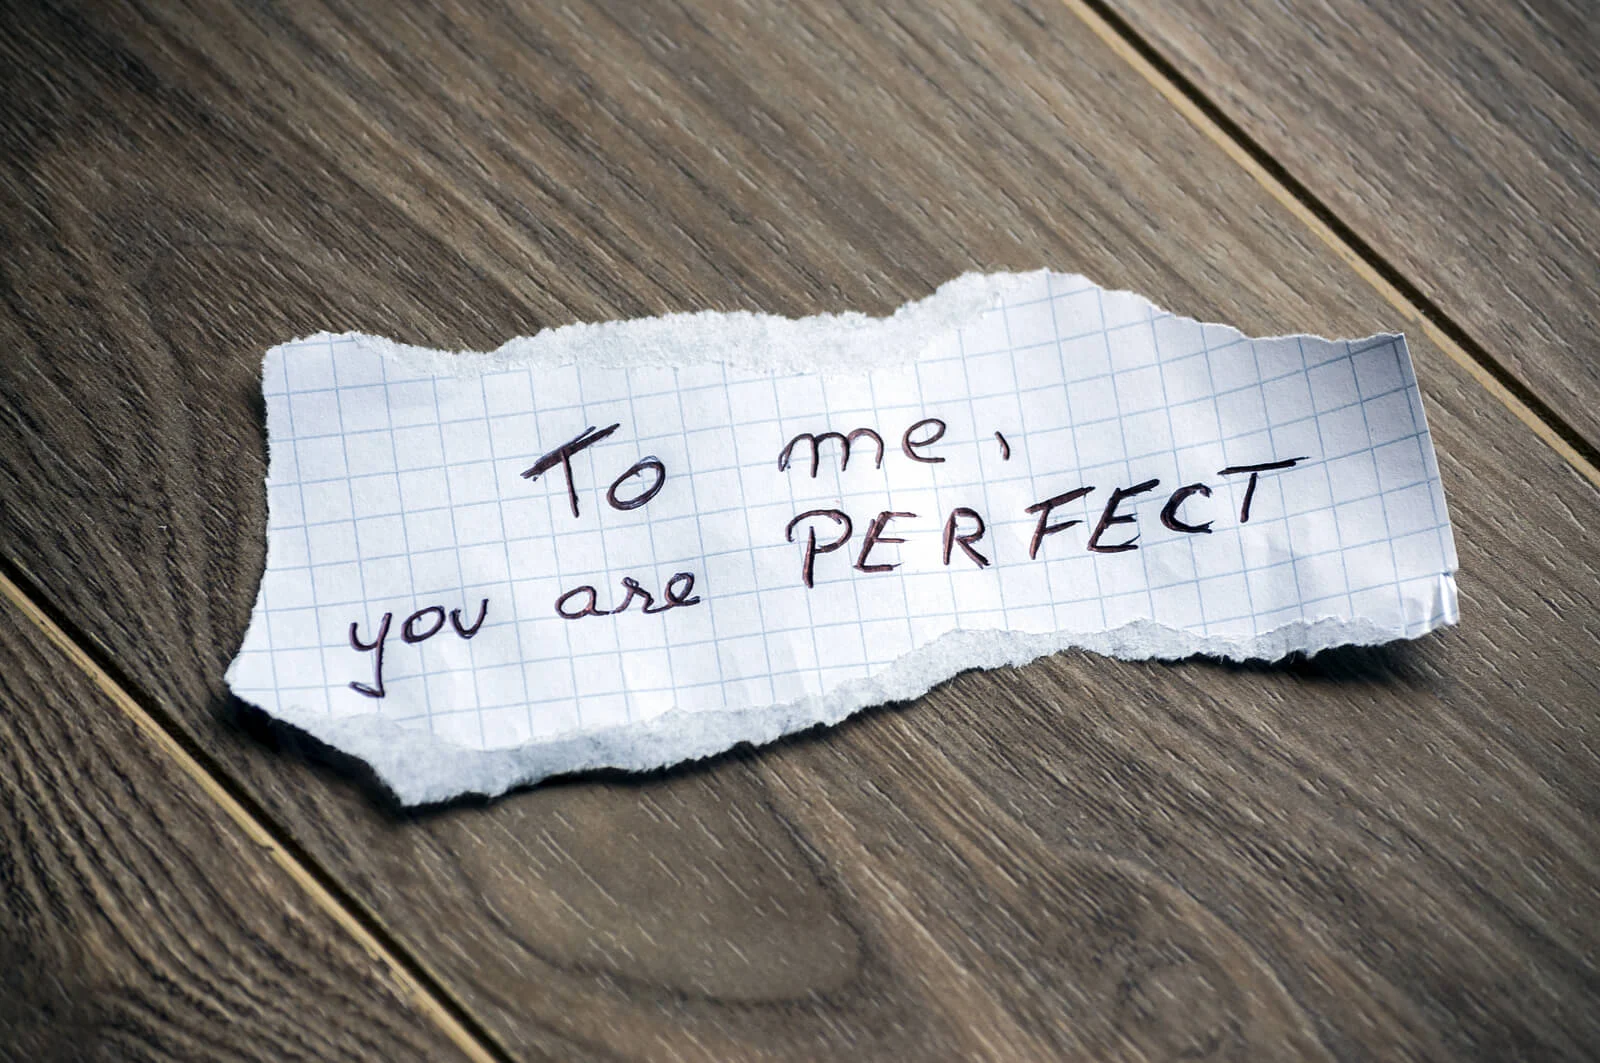 To me,
you are PERFECT